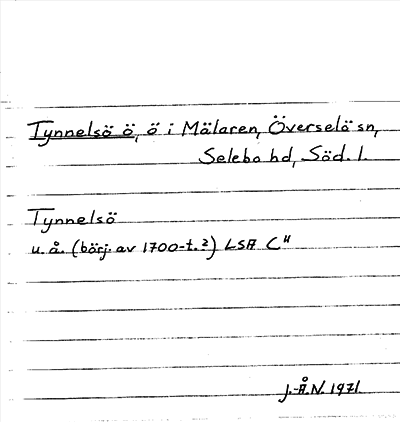 Tynnelsö ö, ö i Mälaren, Överselö sn,
Selebo hd, Söd. l.
Tynnelsö
u. å. (börj. av 1700-t.?) LSA C"
J.-Å.N. 1971